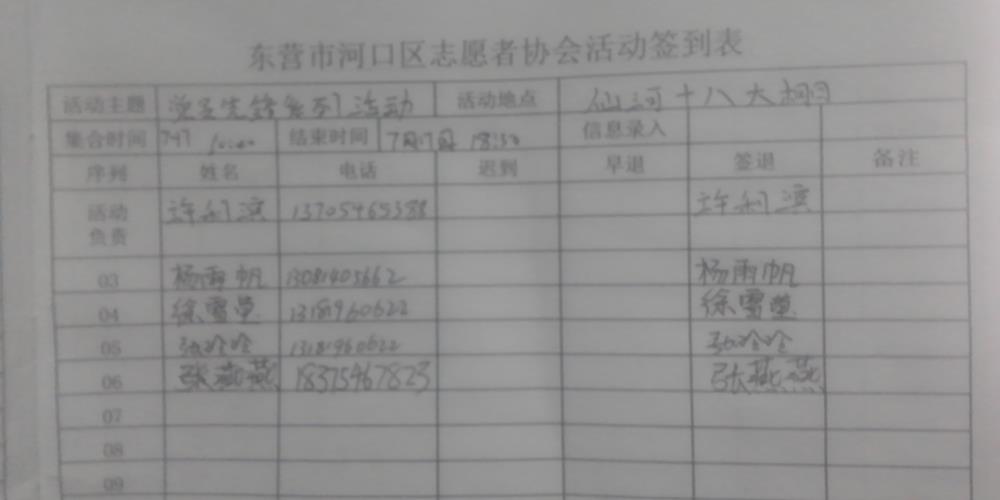 东营市河口区志愿者协会活动签到表
活动主题 系列活动 活动地点 仙河十八大
集合时间 结束时间 7月17日 18:30 信息录入
序列 姓名 电话 迟到 早退 签退 备注
活动负责 许利滨 13705465388 许利滨
03 杨雨帆 13081405662 杨雨帆
04 徐雪莹 13181960622 徐雪莹
05 张冷冷 13181960622 张冷冷
06 张燕燕 18375467823 张燕燕
07
08
09